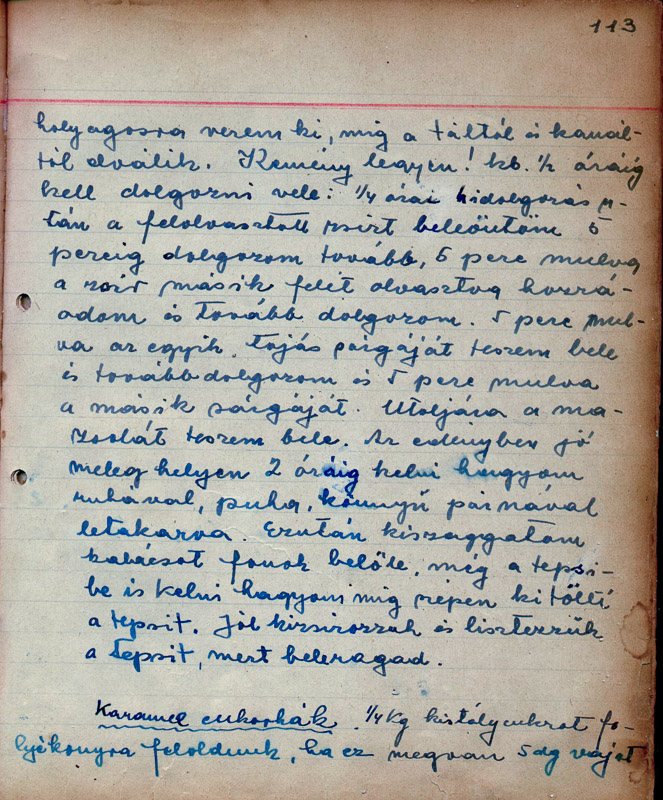 113
holyagosra verem ki, mig a táltól és kanál-
tól elválik. Kemény legyen! kb. 1/2 óráig
kell dolgozni vele: 1/4 órai kidolgozás u-
tán a felolvasztott zsirt beleöntöm 5
percig dolgozom tovább, 5 perc mulva
a zsir másik felét olvasztva hozzá-
adom és tovább dolgozom. 5 perc mul-
va az egyik tojás sárgáját teszem bele
és tovább dolgozom és 5 perc mulva
a másik sárgáját. Utoljára a ma-
zsolát teszem bele. Az edényben jó
meleg helyen 2 óráig kelni hagyom
ruhával, puha, könnyű párnával
letakarva. Ezután kiszaggatom
kalácsot fonok belőle, még a tepsi-
be is kelni hagyom mig szépen kitölti
a tepsit. Jól kizsirozzuk és lisztezzük
a tepsit, mert beleragad.
Karamel cukorkák. 1/4 kg kistálycukrot fo-
lyékonyra feloldunk, ha ez megvan 5 dg vajat